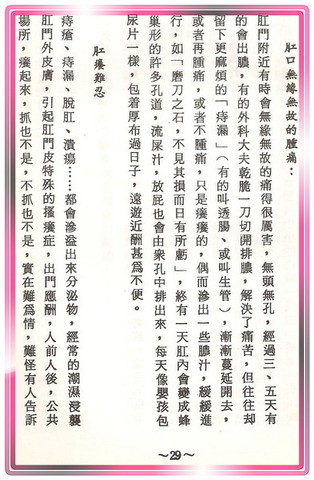 肛口無緣無故的腫痛：
肛門附近有時會無緣無故的痛得很厲害，無頭無孔，經過三、五天有
的會出膿，有的外科大夫乾脆一刀切開排膿，解決了痛苦，但往往却
留下更麻煩的「痔漏」（有的叫透腸、或叫生管），漸漸蔓延開去，
或者再腫痛，或者不腫痛，只是癢癢的，偶而滲出一些膿汁，緩緩進
行，如「磨刀之石，不見其損而日有所虧」，終有一天肛內會變成蜂
巢形的許多孔道，流屎汁，放屁也會由衆孔中排出來，每天像嬰孩包
尿片一樣，包着厚布過日子，遠遊近酬甚爲不便。
肛癢難忍
痔瘡、痔漏、脫肛、潰瘍……都會滲溢出來分泌物，經常的潮濕浸襲
肛門外皮膚，引起肛門皮特殊的搔癢症，出門應酬，人前人後，公共
場所，癢起來，抓也不是，不抓也不是，實在難爲情，難怪有人告訴
～29～